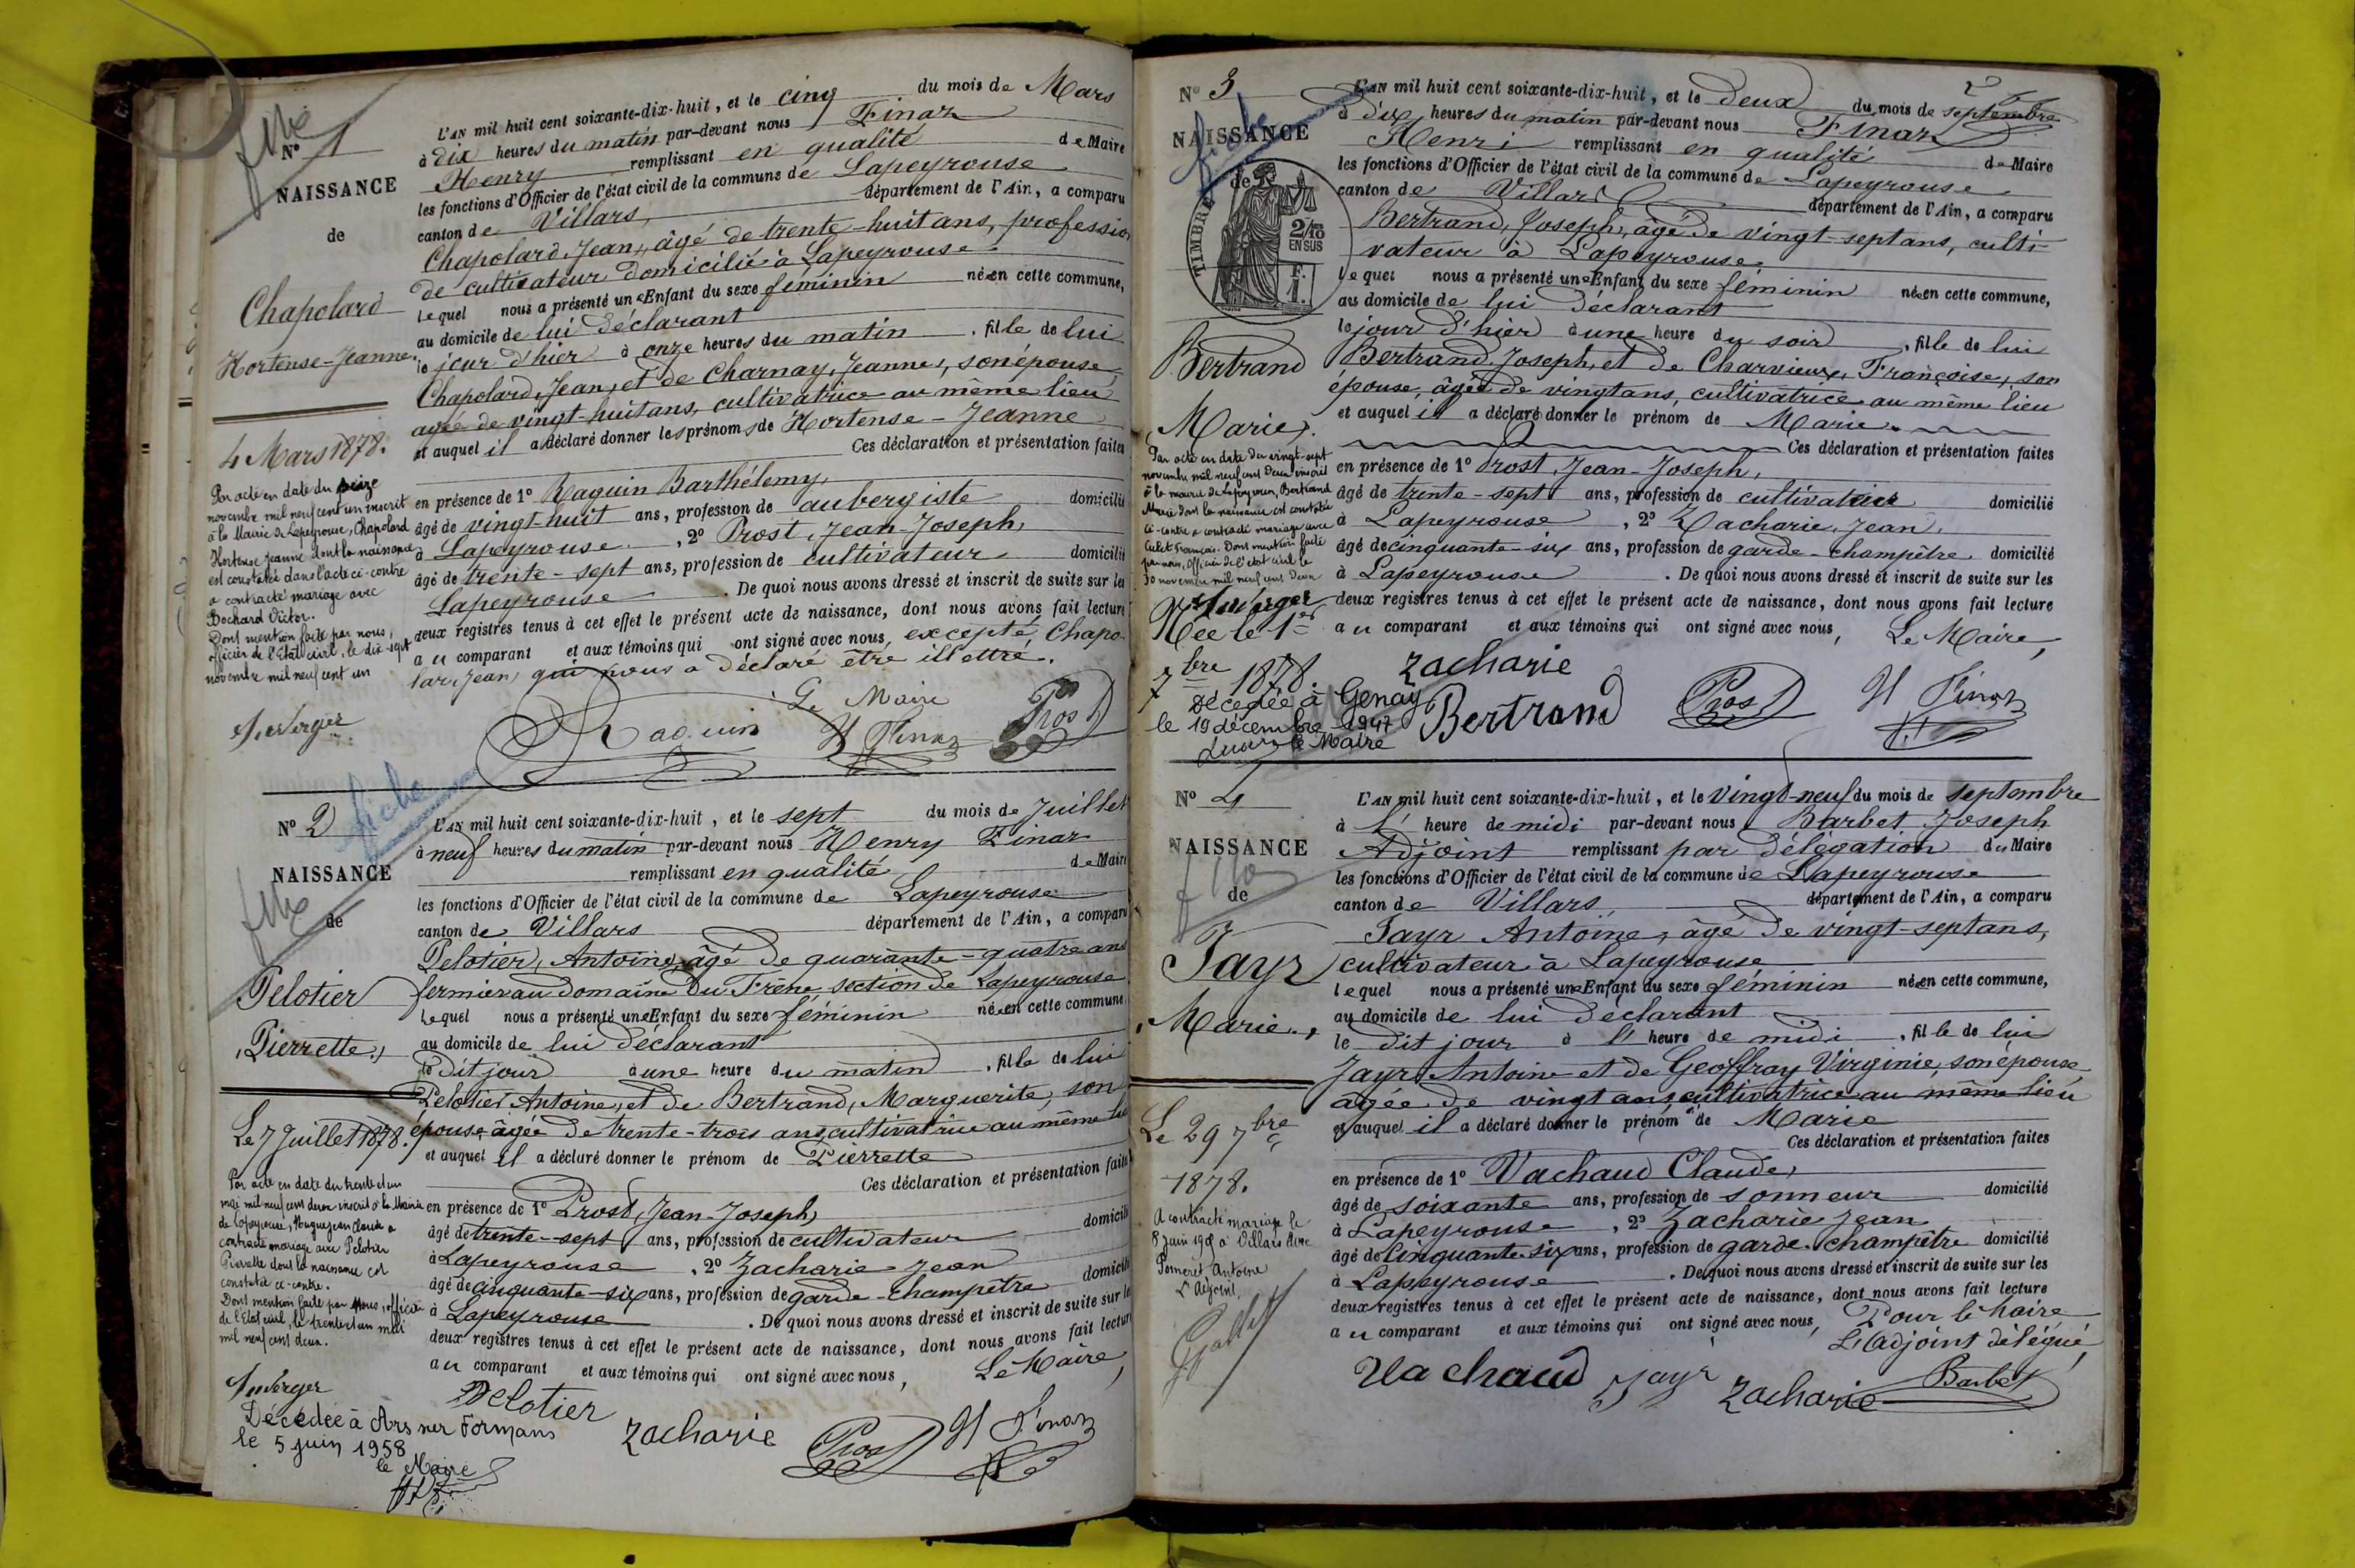 N° 1
NAISSANCE
de
Chapolard
Hortense-Jeanne.
4 Mars 1878.
Par acte en date du seize
novembre mil neuf cent un inscrit
à la Mairie de Lapeyrouse, Chapolard
Hortense Jeanne dont la naissance
est constatée dans l'acte ci-contre
a contracté mariage avec
Bochard Victor.
Dont mention faite par nous,
officier de l'Etat civil, le dix sept
novembre mil neuf cent un
L'AN mil huit cent soixante-dix-huit, et le cinq du mois de Mars
à dix heures du matin par-devant nous Finaz
Henry remplissant en qualité de Maire
les fonctions d'Officier de l'état civil de la commune de Lapeyrouse
canton de Villars, département de l'Ain, a comparu
Chapolard, Jean, âgé de trente-huit ans, profession
de cultivateur domicilié à Lapeyrouse
lequel nous a présenté une Enfant du sexe féminin née en cette commune,
au domicile de lui déclarant
le jour d'hier à onze heures du matin, fille de lui
Chapolard, Jean, et de Charnay, Jeanne, son épouse
agée de vingt-huit ans, cultivatrice au même lieu
et auquel il a déclaré donner les prénoms de Hortense-Jeanne
Ces déclaration et présentation faites
en présence de 1° Raquin Barthélemy,
âgé de vingt-huit ans, profession de aubergiste domicilié
à Lapeyrouse, 2° Prost, Jean-Joseph,
âgé de trente-sept ans, profession de cultivateur domicilié
Lapeyrouse. De quoi nous avons dressé et inscrit de suite sur les
deux registres tenus à cet effet le présent acte de naissance, dont nous avons fait lecture
au comparant et aux témoins qui ont signé avec nous, excepté, Chapo-
lar, Jean, qui nous a déclaré être illettré.
Le Maire
Raquin H Finaz Prost
N° 2
fiche
NAISSANCE
de
Pelotier
Pierrette.
Le 7 Juillet 1878.
Par acte en date du trente et un
mai mil neuf cent deux inscrit à la Mairie
de Lapeyrouse, Jean Claude a
contracté mariage avec Pelotier
Pierrette dont la naissance est
constatée ci-contre.
Dont mention faite par Nous, officier
de l'Etat civil, le trente et un mai
mil neuf cent deux.
Décédée à Ars sur Formans
le 5 juin 1958
le Maire
L'AN mil huit cent soixante-dix-huit, et le sept du mois de Juillet
à neuf heures du matin par-devant nous Henry Finaz
remplissant en qualité de Maire
les fonctions d'Officier de l'état civil de la commune de Lapeyrouse
canton de Villars département de l'Ain, a comparu
Pelotier, Antoine, âgé de quarante-quatre ans
fermier au domaine du Frêne section de Lapeyrouse
lequel nous a présenté une Enfant du sexe féminin née en cette commune
au domicile de lui déclarant
le dit jour à une heure du matin, fille de lui
Pelotier Antoine, et de Bertrand, Marguerite, son
épouse, âgée de trente-trois ans, cultivatrice au même lieu
et auquel il a déclaré donner le prénom de Pierrette
Ces déclaration et présentation faites
en présence de 1° Prost, Jean-Joseph,
âgé de trente-sept ans, profession de cultivateur domicilié
à Lapeyrouse, 2° Zacharie Jean
âgé de cinquante-six ans, profession de garde-champêtre domicilié
à Lapeyrouse. De quoi nous avons dressé et inscrit de suite sur les
deux registres tenus à cet effet le présent acte de naissance, dont nous avons fait lecture
au comparant et aux témoins qui ont signé avec nous, Le Maire,
Pelotier Zacharie Prost H Finaz
N° 3
NAISSANCE
de
TIMBRE
2/10 EN SUS
F. 1.
Bertrand
Marie.
Par acte en date du vingt-sept
novembre mil neuf cent deux inscrit
à la mairie de Lapeyrouse, Bertrand
Marie dont la naissance est constatée
ci-contre a contracté mariage avec
François. Dont mention faite
par nous, Officier de l'état civil le
30 novembre mil neuf cent deux
Née le 1er
7bre 1878.
Décédée à Genay
le 19 décembre 1947
le Maire
L'AN mil huit cent soixante-dix-huit, et le deux du mois de septembre
à dix heures du matin par-devant nous Finaz
Henri remplissant en qualité de Maire
les fonctions d'Officier de l'état civil de la commune de Lapeyrouse
canton de Villars département de l'Ain, a comparu
Bertrand, Joseph, âgé de vingt-sept ans, culti-
vateur à Lapeyrouse.
lequel nous a présenté une Enfant du sexe féminin née en cette commune,
au domicile de lui déclarant
le jour d'hier à une heure du soir, fille de lui
Bertrand, Joseph, et de Charvieux, Françoise, son
épouse, âgée de vingt ans, cultivatrice au même lieu
et auquel il a déclaré donner le prénom de Marie.
Ces déclaration et présentation faites
en présence de 1° Prost, Jean-Joseph,
âgé de trente-sept ans, profession de cultivateur domicilié
à Lapeyrouse, 2° Zacharie, Jean,
âgé de cinquante-six ans, profession de garde-champêtre domicilié
à Lapeyrouse. De quoi nous avons dressé et inscrit de suite sur les
deux registres tenus à cet effet le présent acte de naissance, dont nous avons fait lecture
au comparant et aux témoins qui ont signé avec nous, Le Maire,
Zacharie
Bertrand Prost H Finaz
N° 4
NAISSANCE
de
Jayr
Marie.
Le 29 7bre
1878.
A contracté mariage le
8 juin 190 à Villars avec
Antoine
L'adjoint,
L'AN mil huit cent soixante-dix-huit, et le vingt-neuf du mois de septembre
à l' heure de midi par-devant nous Barbet Joseph
Adjoint remplissant par délégation du Maire
les fonctions d'Officier de l'état civil de la commune de Lapeyrouse
canton de Villars, département de l'Ain, a comparu
Jayr Antoine, âgé de vingt-sept ans,
cultivateur à Lapeyrouse
lequel nous a présenté une Enfant du sexe féminin née en cette commune,
au domicile de lui déclarant
le dit jour à l' heure de midi, fille de lui
Jayr Antoine et de Geoffray Virginie, son épouse
âgée de vingt ans, cultivatrice au même lieu
et auquel il a déclaré donner le prénom de Marie
Ces déclaration et présentation faites
en présence de 1° Vachaud Claude,
âgé de soixante ans, profession de sonneur domicilié
à Lapeyrouse, 2° Zacharie Jean
âgé de cinquante-six ans, profession de garde-champêtre domicilié
à Lapeyrouse. De quoi nous avons dressé et inscrit de suite sur les
deux registres tenus à cet effet le présent acte de naissance, dont nous avons fait lecture
au comparant et aux témoins qui ont signé avec nous, Pour le Maire
L'Adjoint délégué,
Vachaud Jayr Zacharie Barbet